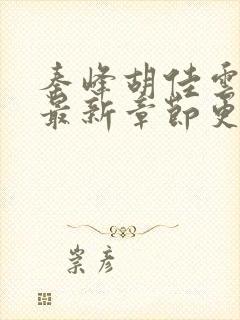 秦峰胡佳雲
最新章節更
崇彦